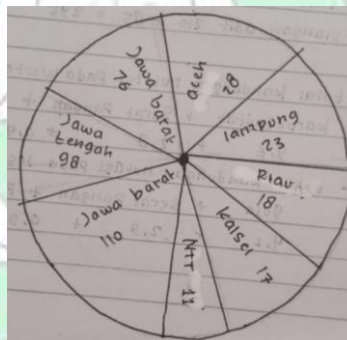 Jawa barat
76
aceh
28
lampung
23
Riau
18
Kalsel 17
NTT
11
Jawa barat
110
Jawa
tengah
98